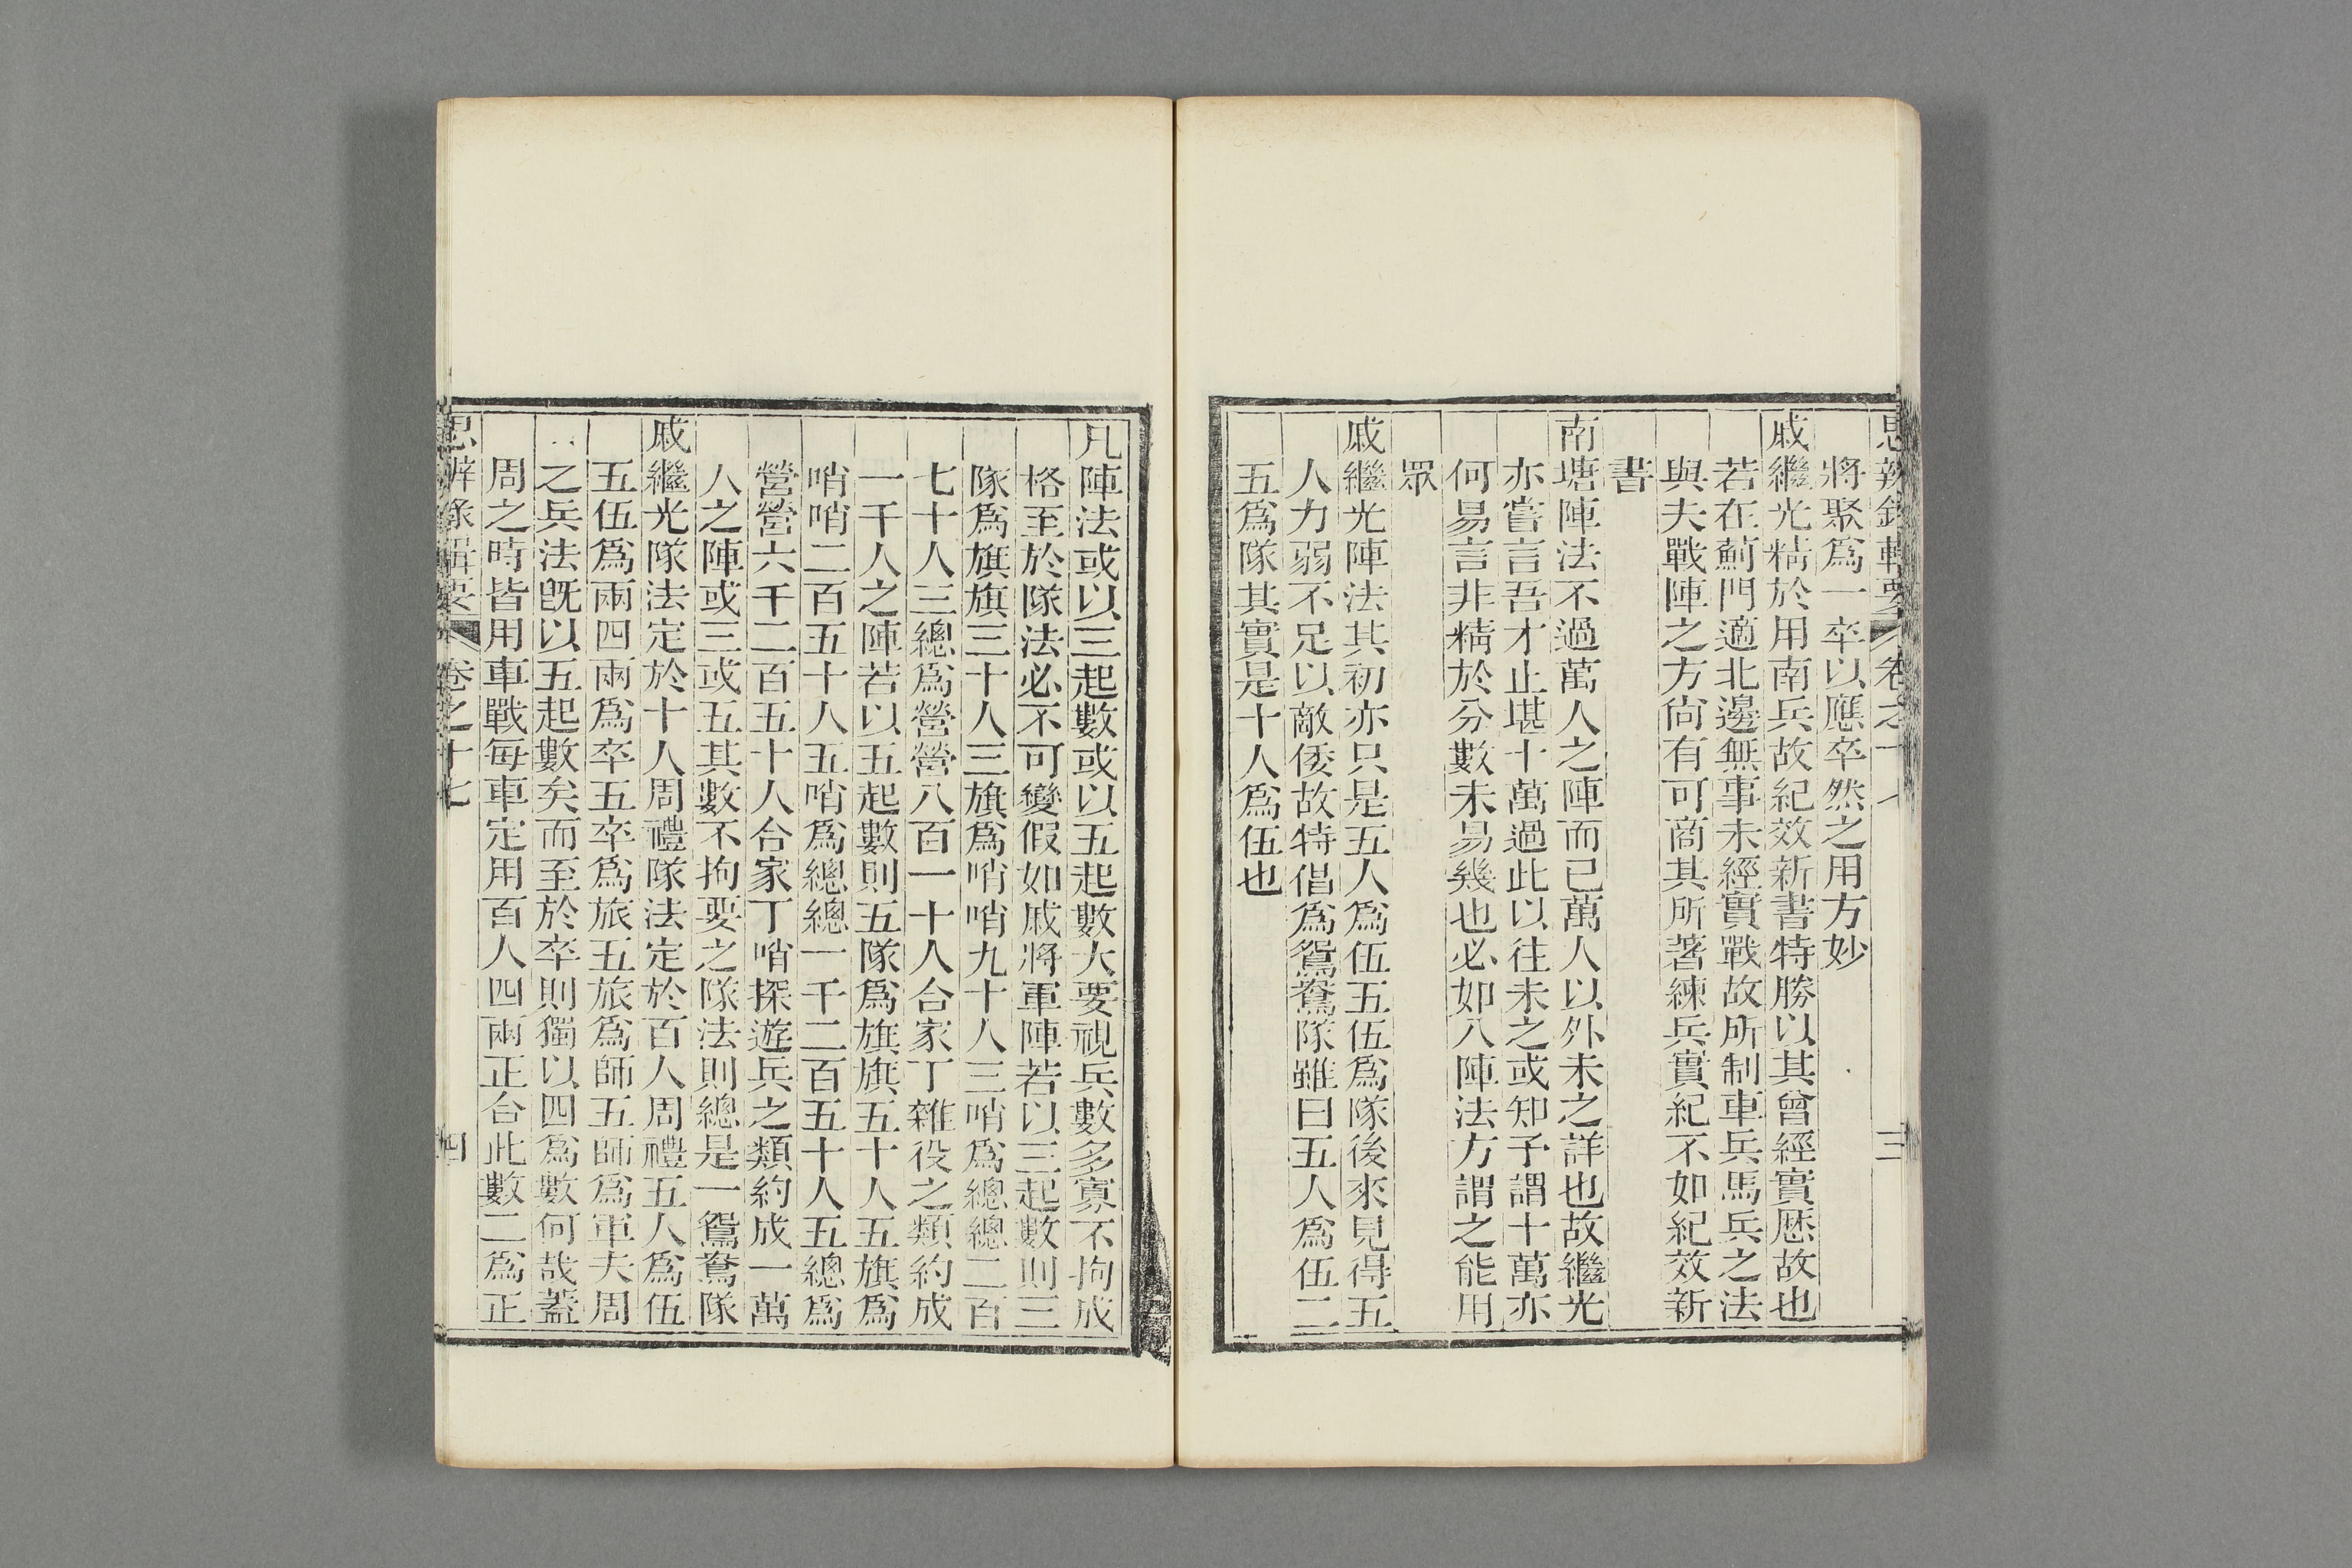 思辨錄輯要 卷之十七 三
將聚爲一卒以應卒然之用方妙
戚繼光精於用南兵故紀效新書特勝以其曾經實歷故也
若在薊門適北邊無事未經實戰故所制車兵馬兵之法
與夫戰陣之方尙有可商其所著練兵實紀不如紀效新
書
南塘陣法不過萬人之陣而已萬人以外未之詳也故繼光
亦嘗言吾才止堪十萬過此以往未之或知予謂十萬亦
何易言非精於分數未易幾也必如八陣法方謂之能用
眾
戚繼光陣法其初亦只是五人爲伍五伍爲隊後來見得五
人力弱不足以敵倭故特倡爲鴛鴦隊雖曰五人爲伍二
五爲隊其實是十人爲伍也
凡陣法或以三起數或以五起數大要視兵數多寡不拘成
格至於隊法必不可變假如戚將軍陣若以三起數則三
隊爲旗旗三十人三旗爲哨哨九十人三哨爲總總二百
七十人三總爲營營八百一十人合家丁雜役之類約成
一千人之陣若以五起數則五隊爲旗旗五十人五旗爲
哨哨二百五十人五哨爲總總一千二百五十人五總爲
營營六千二百五十人合家丁哨探遊兵之類約成一萬
人之陣或三或五其數不拘要之隊法則總是一鴛鴦隊
戚繼光隊法定於十人周禮隊法定於百人周禮五人爲伍
五伍爲兩四兩爲卒五卒爲旅五旅爲師五師爲軍夫周
之兵法旣以五起數矣而至於卒則獨以四爲數何哉蓋
周之時皆用車戰每車定用百人四兩正合此數二爲正
思辨錄輯要 卷之十七 四